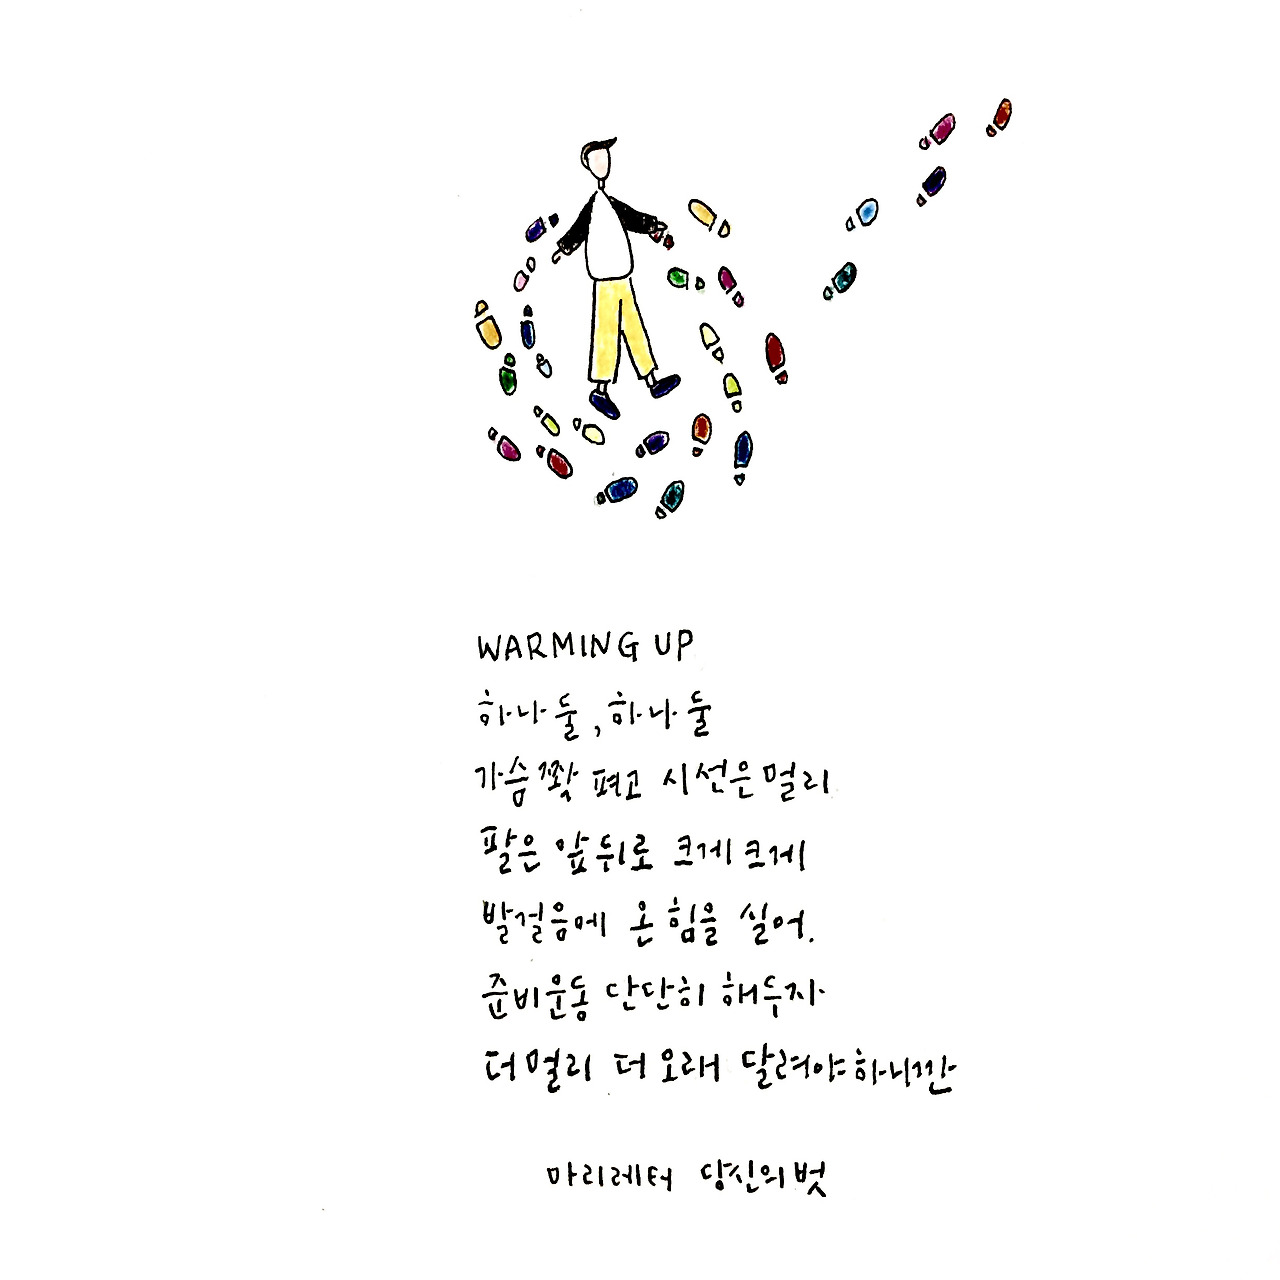 WARMING UP
하나 둘, 하나 둘
가슴 쫙 펴고 시선은 멀리
팔은 앞뒤로 크게 크게
발걸음에 온 힘을 실어.
준비운동 단단히 해두자
더 멀리 더 오래 달려야하니깐
마리레터 당신의 벗